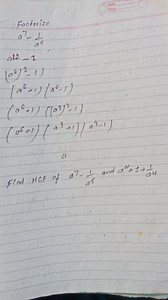 Factorize
a⁷ - 1/a⁵
a12 - 1
(a⁶)² - 1)
(a⁶+1) (a⁶-1)
(a⁶+1) [(a³)²-1)
(a⁶+1) (a³+1) (a³-1)
11
Find HCF of a⁷ - 1/a⁵ and a⁴+1+1/a4